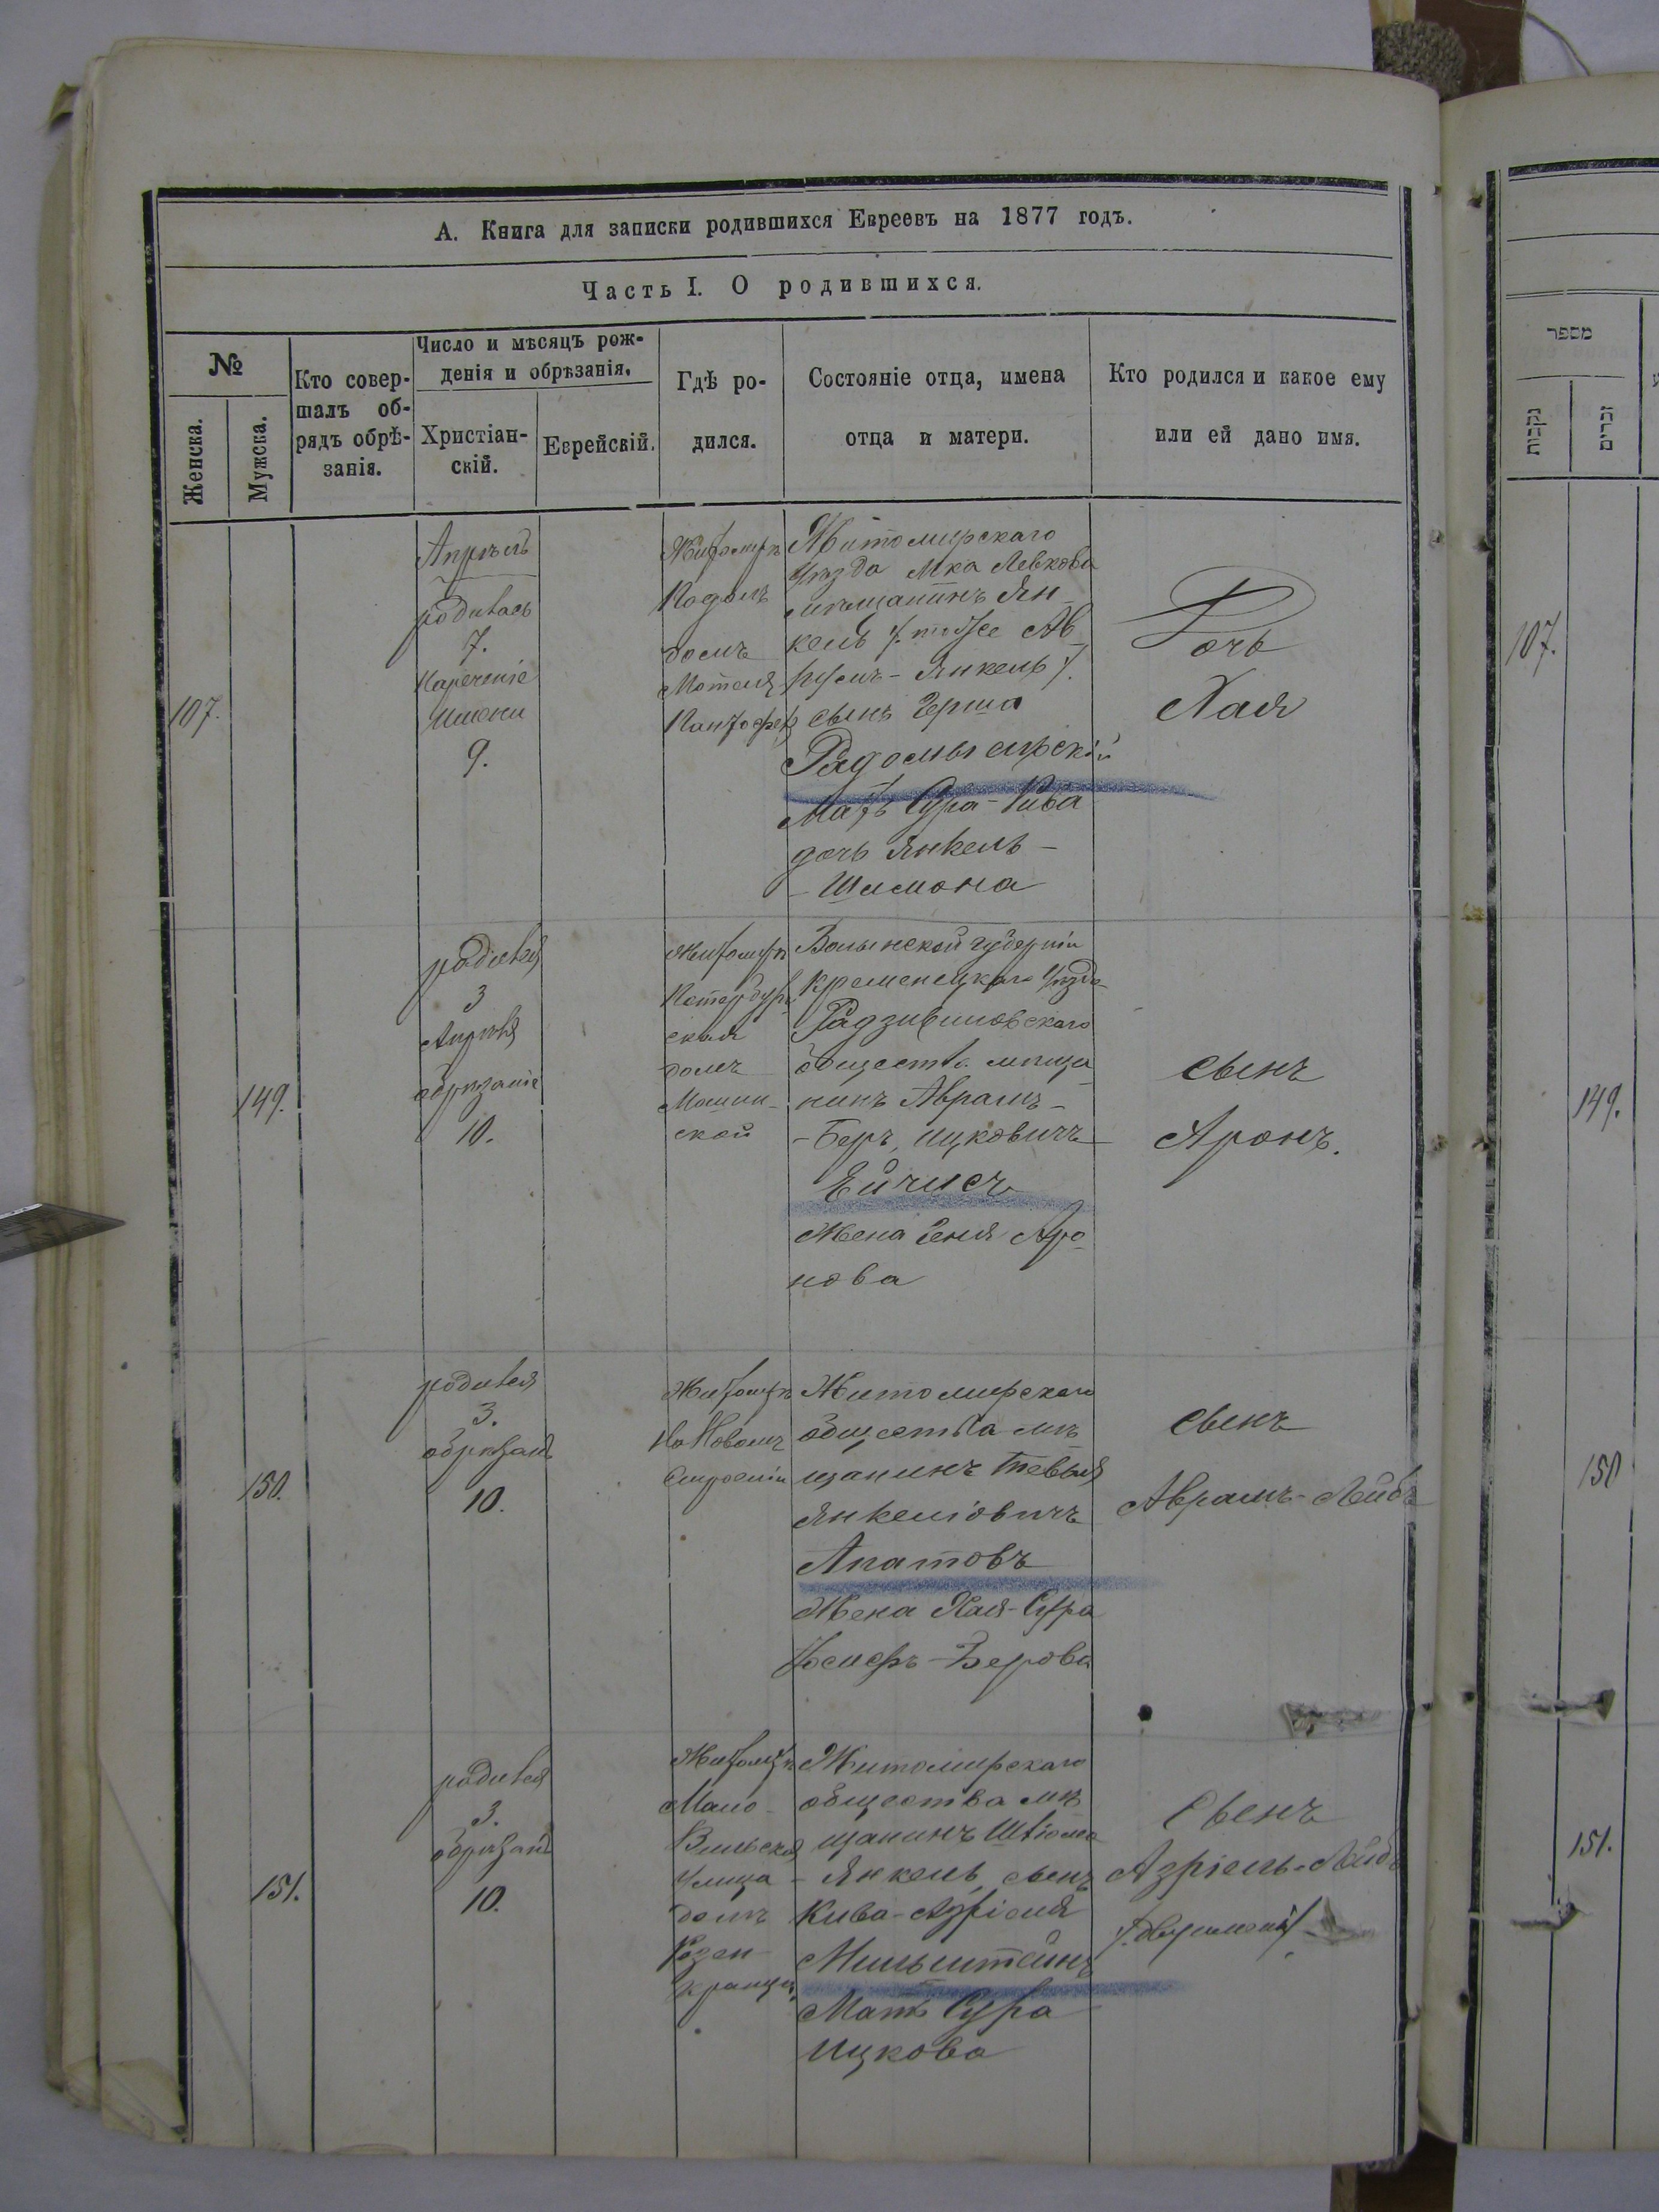 А. Книга для записки родившихся Евреевъ на 1877 годъ.
Часть I. О родившихся.
№
Женска.
Мужска.
Кто совер-
шалъ об-
рядъ обрѣ-
занія.
Число и мѣсяцъ рож-
денія и обрѣзанія.
Христіан-
скій.
Еврейскій.
Гдѣ ро-
дился.
Состояніе отца, имена
отца и матери.
Кто родился и какое ему
или ей дано имя.
107.
Апрѣль
родилась
7.
Нареченіе
имени
9.
Житомиръ
Подолъ
домъ
Мотеля
Житомирскаго
Уѣзда М-ка Левкова
мѣщанинъ Ян-
кель /: тоже Ав
румъ - Янкель /:
сынъ Герша
Радомысльскій
Мать Сура - Рива
дочь Янкель -
- Шимона
Дочь
Хая
149.
родился
3
Апрѣля
обрѣзаніе
10.
Житомиръ
Петербург
ская
домъ
ской
Волынской губерніи
Кременецкаго Уѣзда
Радзивиловскаго
общества мѣща
нинъ Аврамъ -
- Беръ Ицковичъ
Ейчисъ
Жена Геня Аро-
нова
сынъ
Аронъ.
150.
родился
3.
обрѣзанъ
10.
Житомиръ
На Новомъ
Строеніи
Житомирскаго
общества мѣ-
щанинъ Тевья
Янкеліовичъ
Апатовъ
Жена Хая - Сура
Іосифъ - Берова
сынъ
Аврамъ - Лейбъ
151.
родился
3.
обрѣзанъ
10.
Житомиръ
Мало
Вильская
Улица
домъ
Розен
кранца
Житомирскаго
общества мѣ
щанинъ Шліома
- Янкель сынъ
Кива - Азріеля
Мильштейнъ
Мать Сура
Ицкова
Сынъ
Азріель - Лейбъ
/: двуименный /:
מספר
נקבות
זכרים
107.
149.
150
151.